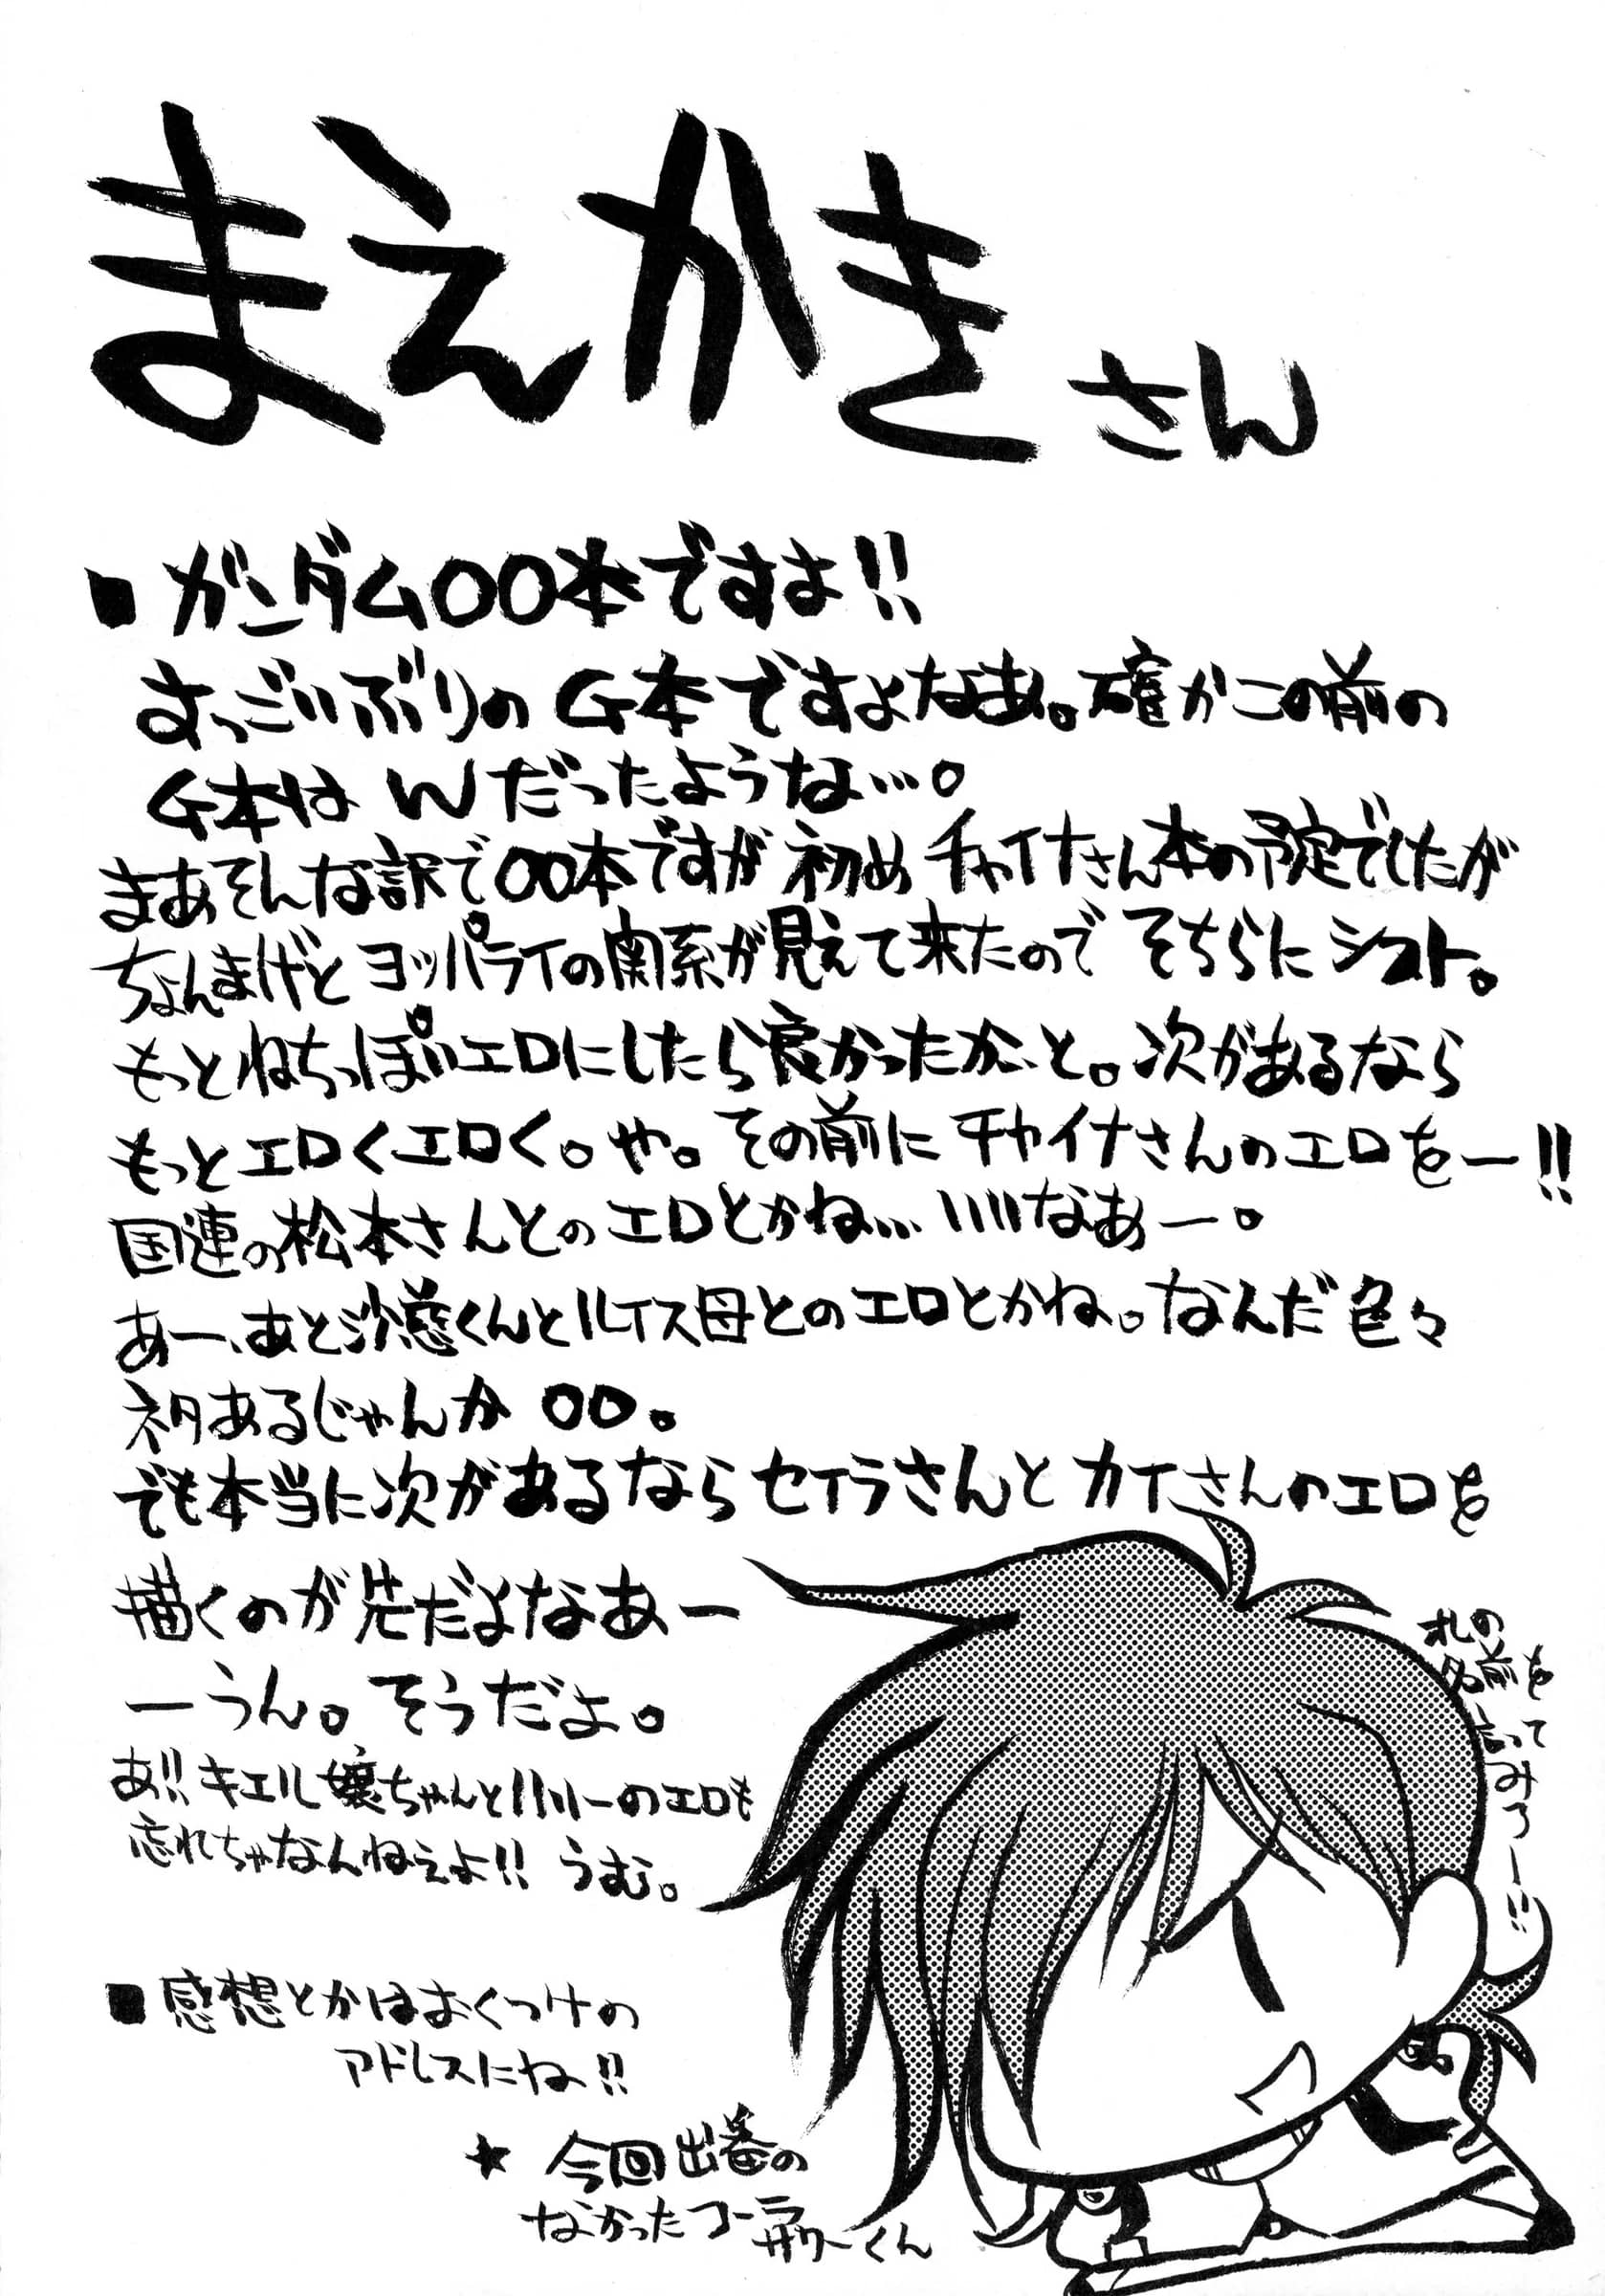 まえかきさん
■ ガンダム〇〇本ですよ!!
すっごいぶりのG本ですよなあ。確かこの前の
G本はWだったような…。
まあそんな訳で〇〇本ですが初めチャイナさん本の予定でしたが
ちょんまげとヨッパライの関系が見えて来たのでそちらにシフト。
もっとねちっぽいエロにしたら良かったかと。次があるなら
もっとエロくエロく。や。その前にチャイナさんのエロをー!!
国連の松本さんとのエロとかね…いいなあー。
あー、あと沙慈くんとルイス母とのエロとかね。なんだ色々
ネタあるじゃんか〇〇。
でも本当に次があるならセイラさんとカイさんのエロを
描くのが先だよなあー
ーうん。そうだよ。
あ!!キエル嬢ちゃんとハリーのエロも
忘れちゃなんねぇよ!!うむ。
■ 感想とかはおくつけの
アドレスにね!!
★ 今回出番の
なかったコーラサワーくん
オレの
名前を
言って
みろー!!